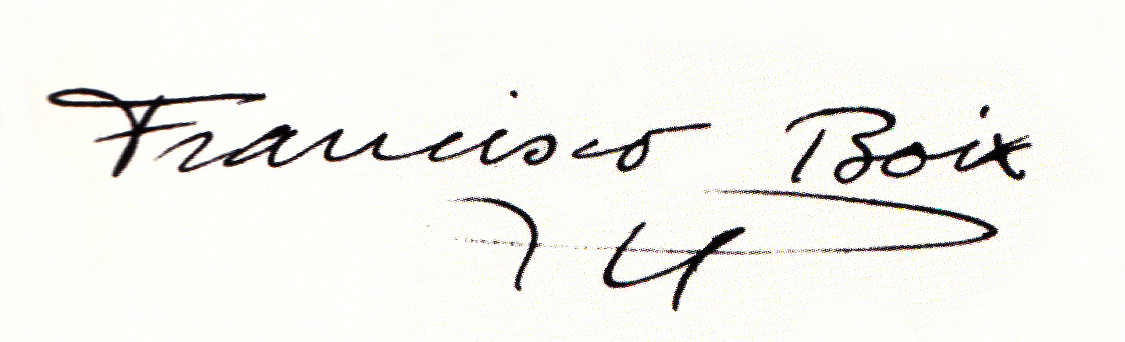 Francisco Boix
74